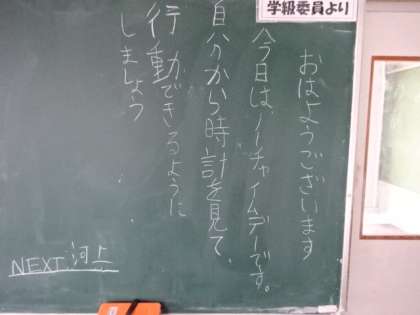 学級委員より
おはようございます
今日は、ノーチャイムデーです。
自分から時計を見て、
行動できるように
しましょう
NEXT 河上